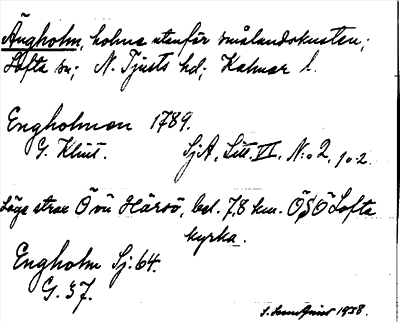 Ängholm, holme utanför smålandskusten;
Lofta sn; N. Tjusts hd; Kalmar l.
Engholmen 1789.
G. Klint. SjA, Litt. VI. N:o 2, 1 o. 2.
Läge strax Ö om Hårsö, bel. 7,8 km. ÖSÖ Lofta
kyrka.
Engholm Sj. 64.
G. 37.
S. Lundquist 1938.